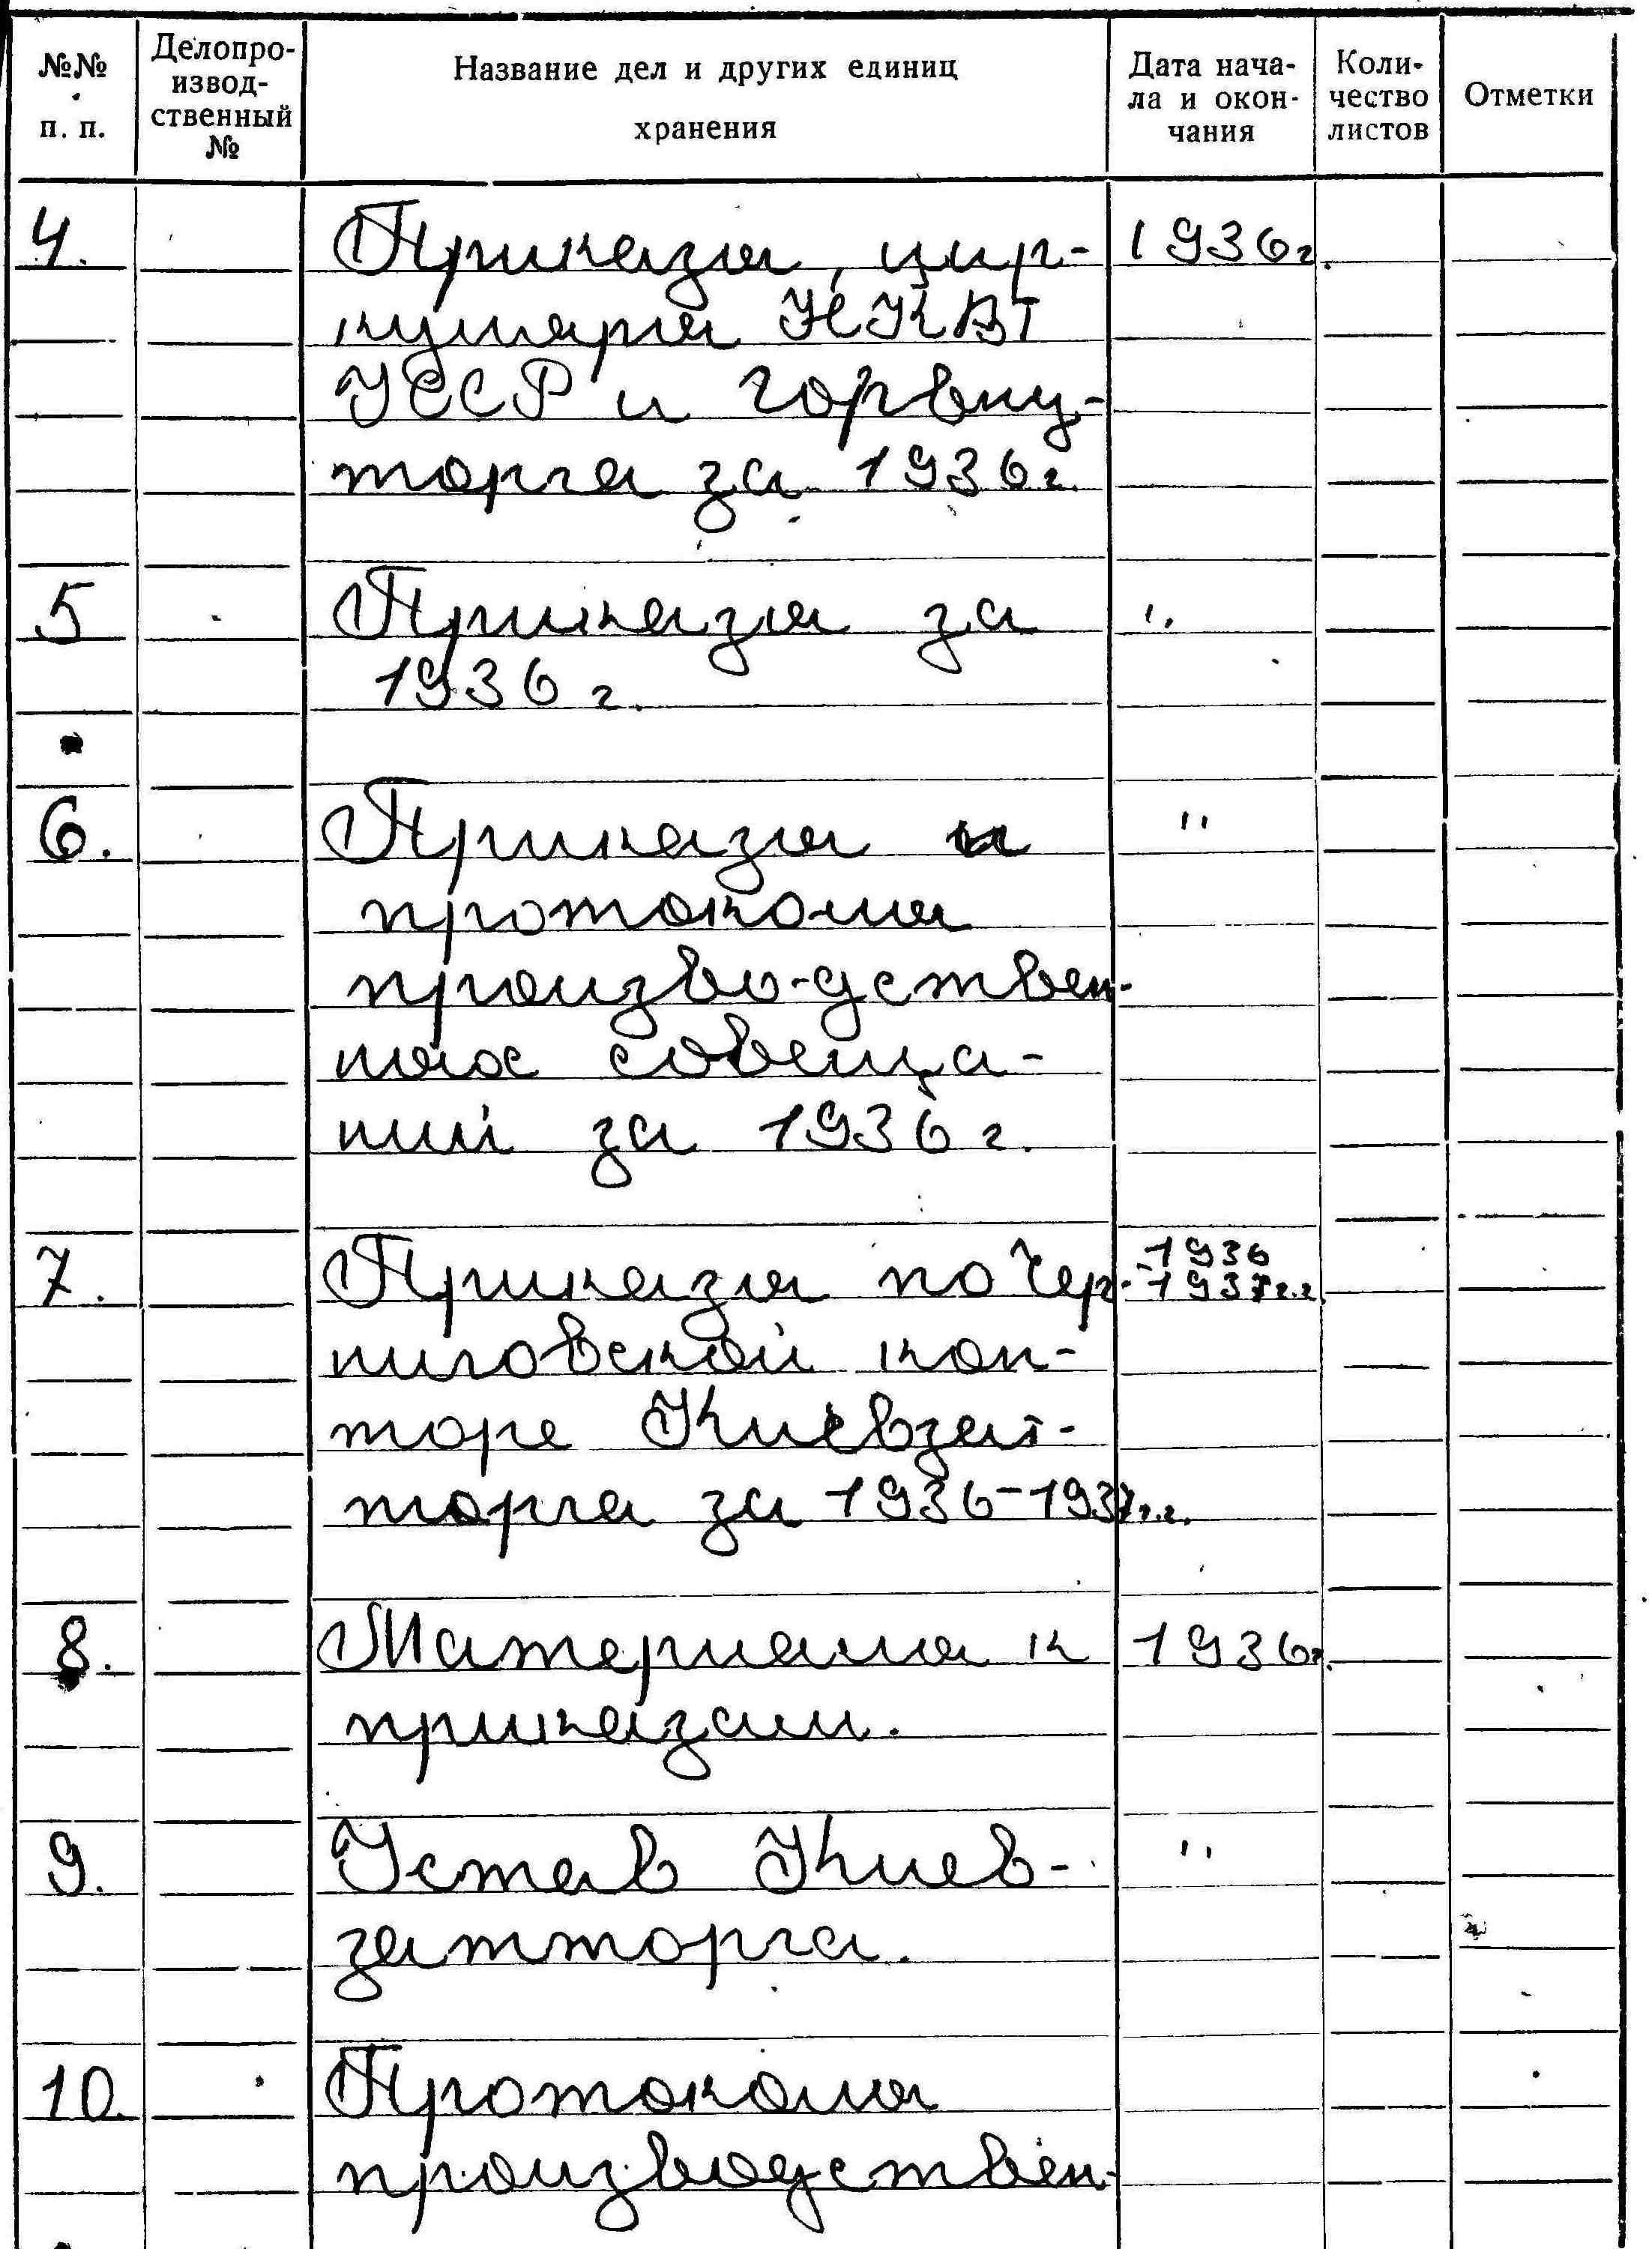 №№ п. п.
Делопро-
извод-
ственный
№
Название дел и других единиц
хранения
Дата нача-
ла и окон-
чания
Коли-
чество
листов
Отметки
4. Приказы, цир- 1936г.
куляры НКВТ
УССР и Горвну-
торга за 1936г.
5 Приказы за "
1936 г.
6. Приказы и "
протоколы
произво-дствен-
ных совеща-
ний за 1936 г.
7. Приказы по Чер- 1936
-1937г.г.
ниговской кон-
торе Киевзат-
торга за 1936-1937г.г.
8. Материалы к 1936г.
приказам.
9. Устав Киев- "
затторга.
10. Протоколы
производствен-